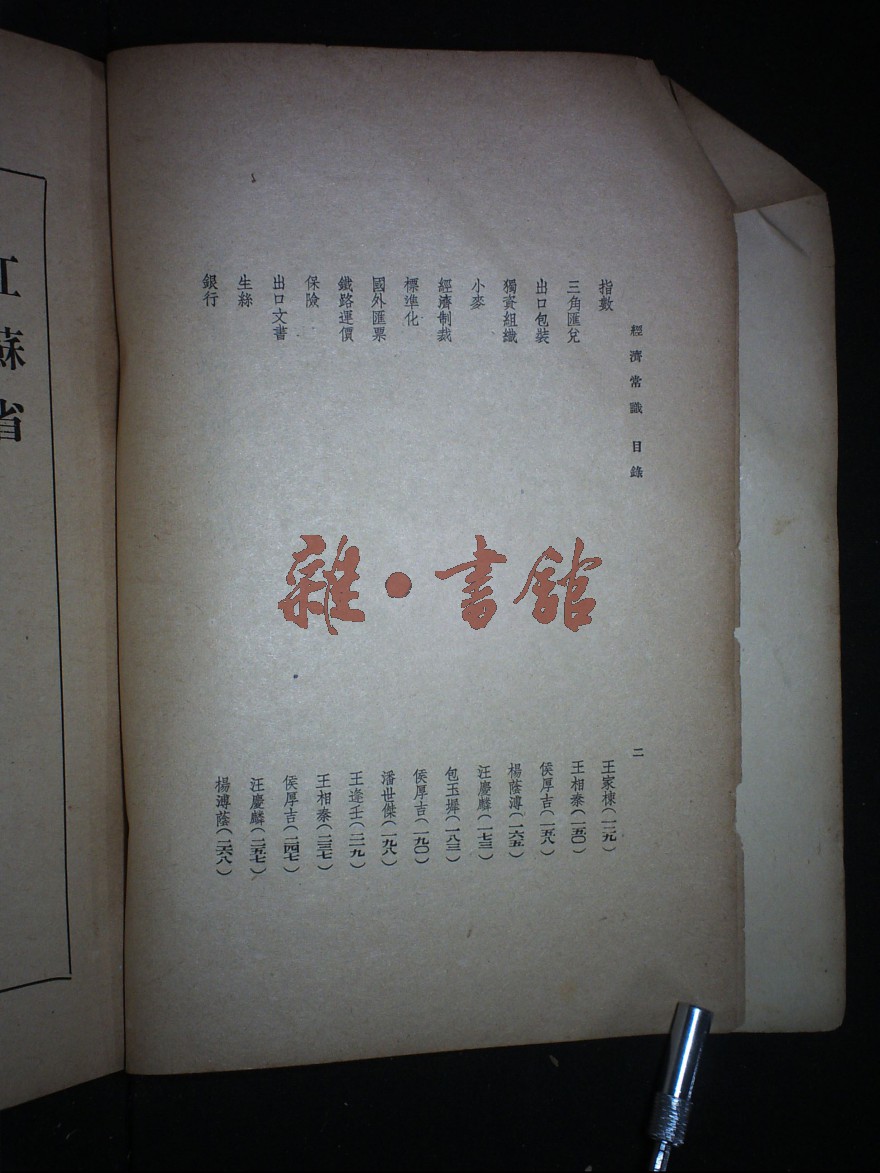 經濟常識 目錄
二
指數 王家棟(一二九)
三角匯兌 王相泰(一五〇)
出口包裝 侯厚吉(一五八)
獨資組織 楊蔭溥(一六五)
小麥 汪慶麟(一七三)
經濟制裁 包玉墀(一八三)
標準化 侯厚吉(一九〇)
國外匯票 潘世傑(一九八)
鐵路運價 王逢壬(二一九)
保險 王相泰(二三七)
出口文書 侯厚吉(二四七)
生絲 汪慶麟(二五七)
銀行 楊溥蔭(二六八)
江蘇省
雜·書館